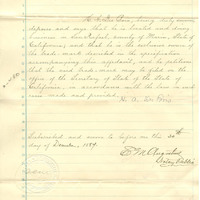 being duly
deposes and says that he is located and doing
business in San Rafael, County of Marin, State of
California, and that he is the exclusive owner of
the trade-mark described in the specification
accompanying this affidavit, and he petitions
that the said trade-mark may be filed in the
office of the Secretary of State of the State of
California, in accordance with the law in such
case made and provided.
Subscribed and sworn to before me this 20th
day of December, 1889.
Notary Public